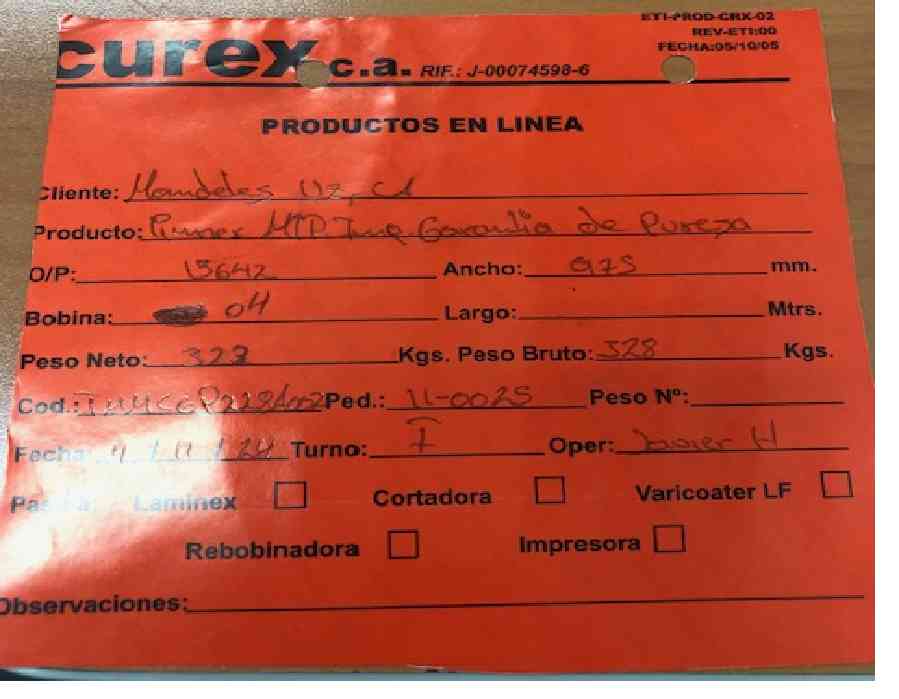 ETI-PROD-CRX-02
REV-ETI:00
FECHA:05/10/05
curex c.a. RIF.: J-00074598-6
PRODUCTOS EN LINEA
Cliente: Mondeles Vz, CA
Producto: MTP Garantia de Pureza
O/P: 15642 Ancho: 975 mm.
Bobina: 04 Largo: Mtrs.
Peso Neto: 323 Kgs. Peso Bruto: 328 Kgs.
Cod.: Ped.: 11-0025 Peso Nº:
Fecha: 4 / 11 / 24 Turno: Oper: Javier H
Pasa a Laminex Cortadora Varicoater LF
Rebobinadora Impresora
Observaciones: